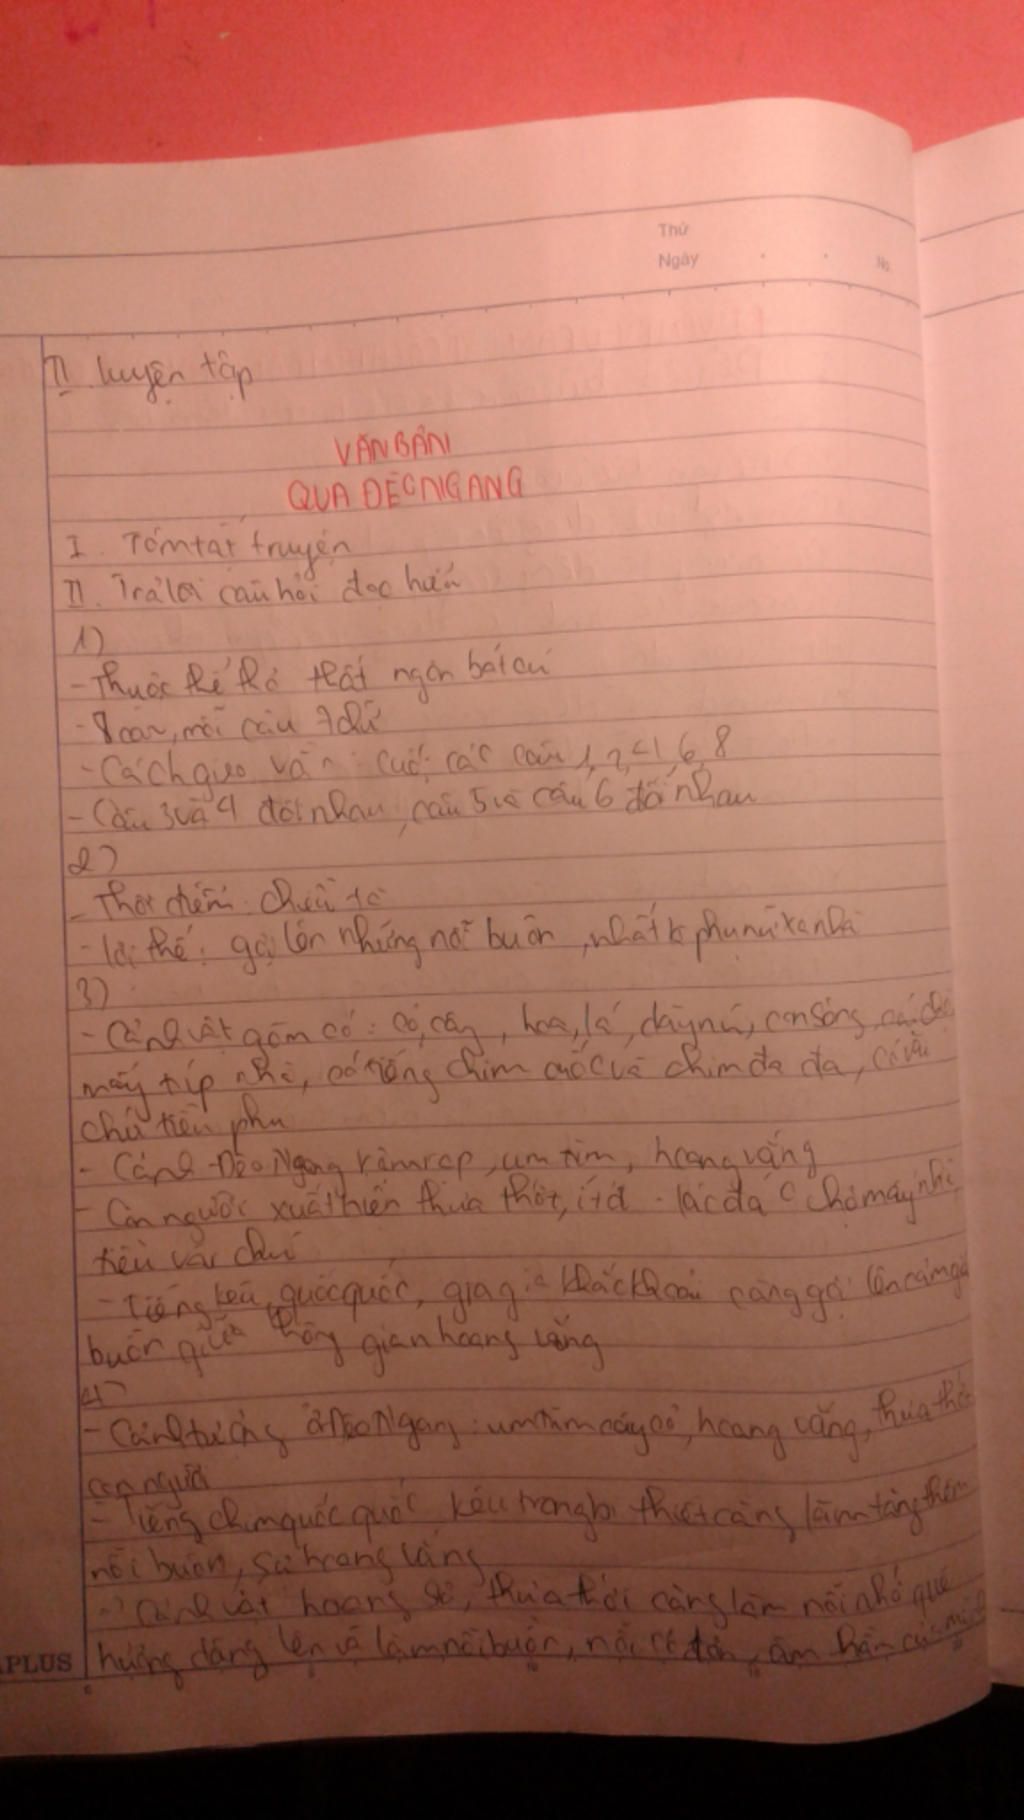 Thứ
Ngày No.
II. Luyện tập
VĂN BẢN
QUA ĐÈO NGANG
I. Tóm tắt truyện
II. Trả lời câu hỏi đọc hiểu
1)
- Thuộc thể thơ thất ngôn bát cú
- 8 câu, mỗi câu 7 chữ
- Cách gieo vần: cuối các câu 1, 2, 4, 6, 8
- Câu 3 và 4 đối nhau, câu 5 và câu 6 đối nhau
2)
- Thời điểm: chiều tà
- lợi thế: gợi lên những nỗi buồn, nhất là phụ nữ xa nhà
3)
- Cảnh vật gồm có: cỏ, cây, hoa, lá, dãy núi, con sông, cái chợ
mấy túp nhà, có tiếng chim cuốc và chim đa đa, có vài
chú tiều phu
- Cảnh Đèo Ngang rậm rạp, um tùm, hoang vắng
- Con người xuất hiện thưa thớt, ít ỏi. lác đác chợ mấy nhà,
tiều vài chú
- Tiếng kêu quốc quốc, gia gia khắc khoải càng gợi lên cảm giác
buồn giữa không gian hoang vắng
4)
- Cảnh tượng ở Đèo Ngang: um tùm cây cỏ, hoang vắng, thưa thớt
con người
- Tiếng chim quốc quốc kêu trong da diết càng làm tăng thêm
nỗi buồn, sự hoang vắng
- Cảnh vật hoang sơ, thưa thớt càng làm nỗi nhớ quê
hương dâng lên và làm nỗi buồn, nỗi cô đơn, âm thầm của mình
PLUS